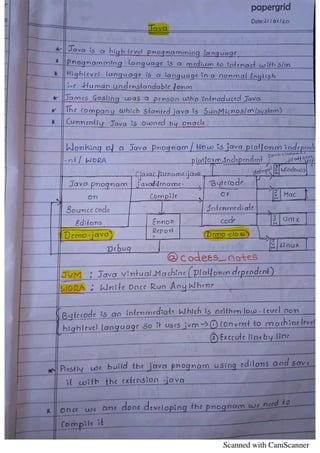 papergrid
Date: 21/01/20
Java
* Java is a high level programming language.
* programming language is a medium to interact with s/m
* Highlevel language is a language in a normal English
i.e Human understandable form
* James Gosling was a person who Introduced Java
* The company which started java is SunMicros/m(system)
* Currently Java is owned by oracle.
Working of a Java program / How is java platform independ
-nt / WORA
platform Independent
Javac filename.java
Windows
Java program
Javafilename.
Bytecode
on
Compile
or
Mac
Source code
Intermediate
Editors
Error
code
Unix
Demo.java
Report
Demo.class
Linux
Debug
@codees_notes
JVM : Java virtual Machine (platform dependent)
WORA : Write Once Run Any Where
Bytecode is an intermediate which is neither low-level nor
highlevel language so it uses jvm → ① convert to machine level
② Execute line by line
* Firstly we build the java program using editors and save
it with the extension .java
* once we are done developing the program we need to
compile it
Scanned with CamScanner